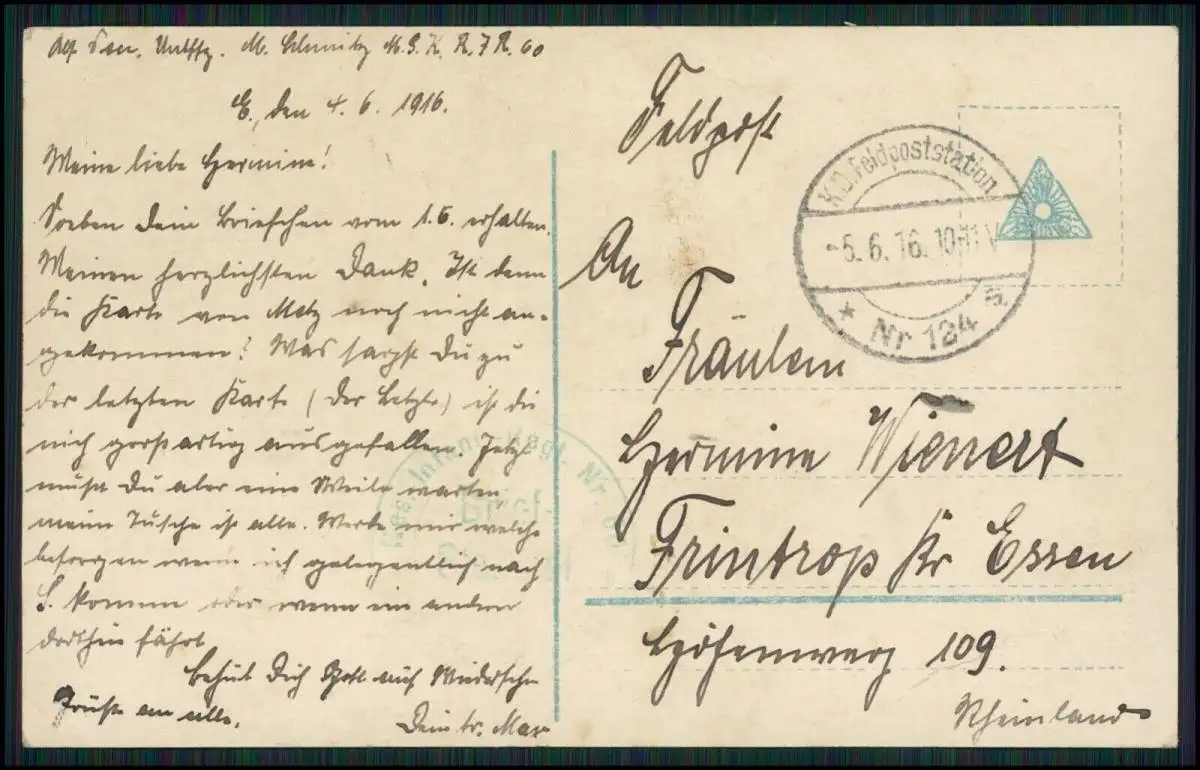 Abs. Unffz. M. Schmitz M.G.K. R.J.R. 60
E., den 4. 6. 1916.
Meine liebe Hermine!
Soeben Dein Briefchen vom 1.6. erhalten.
Meinen herzlichsten Dank. Ist denn
die Karte von Metz noch nicht an-
gekommen? Was sagst Du zu
der letzten Karte (Der Letzte) ist die
nich großartig ausgefallen. Jetzt
mußt Du aber eine Weile warten,
meine Tusche ist alle. Werde mir welche
besorgen wenn ich gelegentlich nach
S. komme oder wenn ein anderer
dorthin fährt
Behüt Dich Gott auf Wiedersehn
Grüße an alle.
Dein tr. Max
Feldpost
K.D.Feldpoststation
-5.6.16. 10-11V
* Nr 124 a.
An
Fräulein
Hermine Wienert
Frintrop Kr Essen
Höfenweg 109.
Rheinland
Res. Infant. Regt. Nr. 60
Brief-